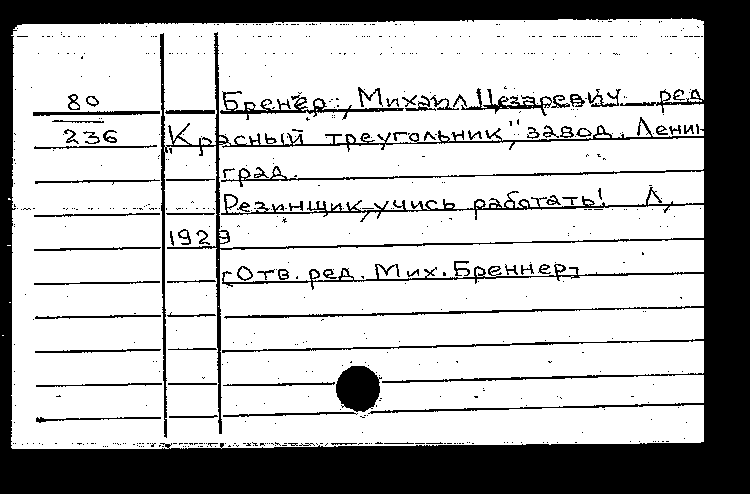 80
236
Бренер, Михаил Цезаревич ред
"Красный треугольник", завод. Ленин
град.
Резинщик, учись работать! Л,
1929
[Отв. ред. Мих. Бреннер]